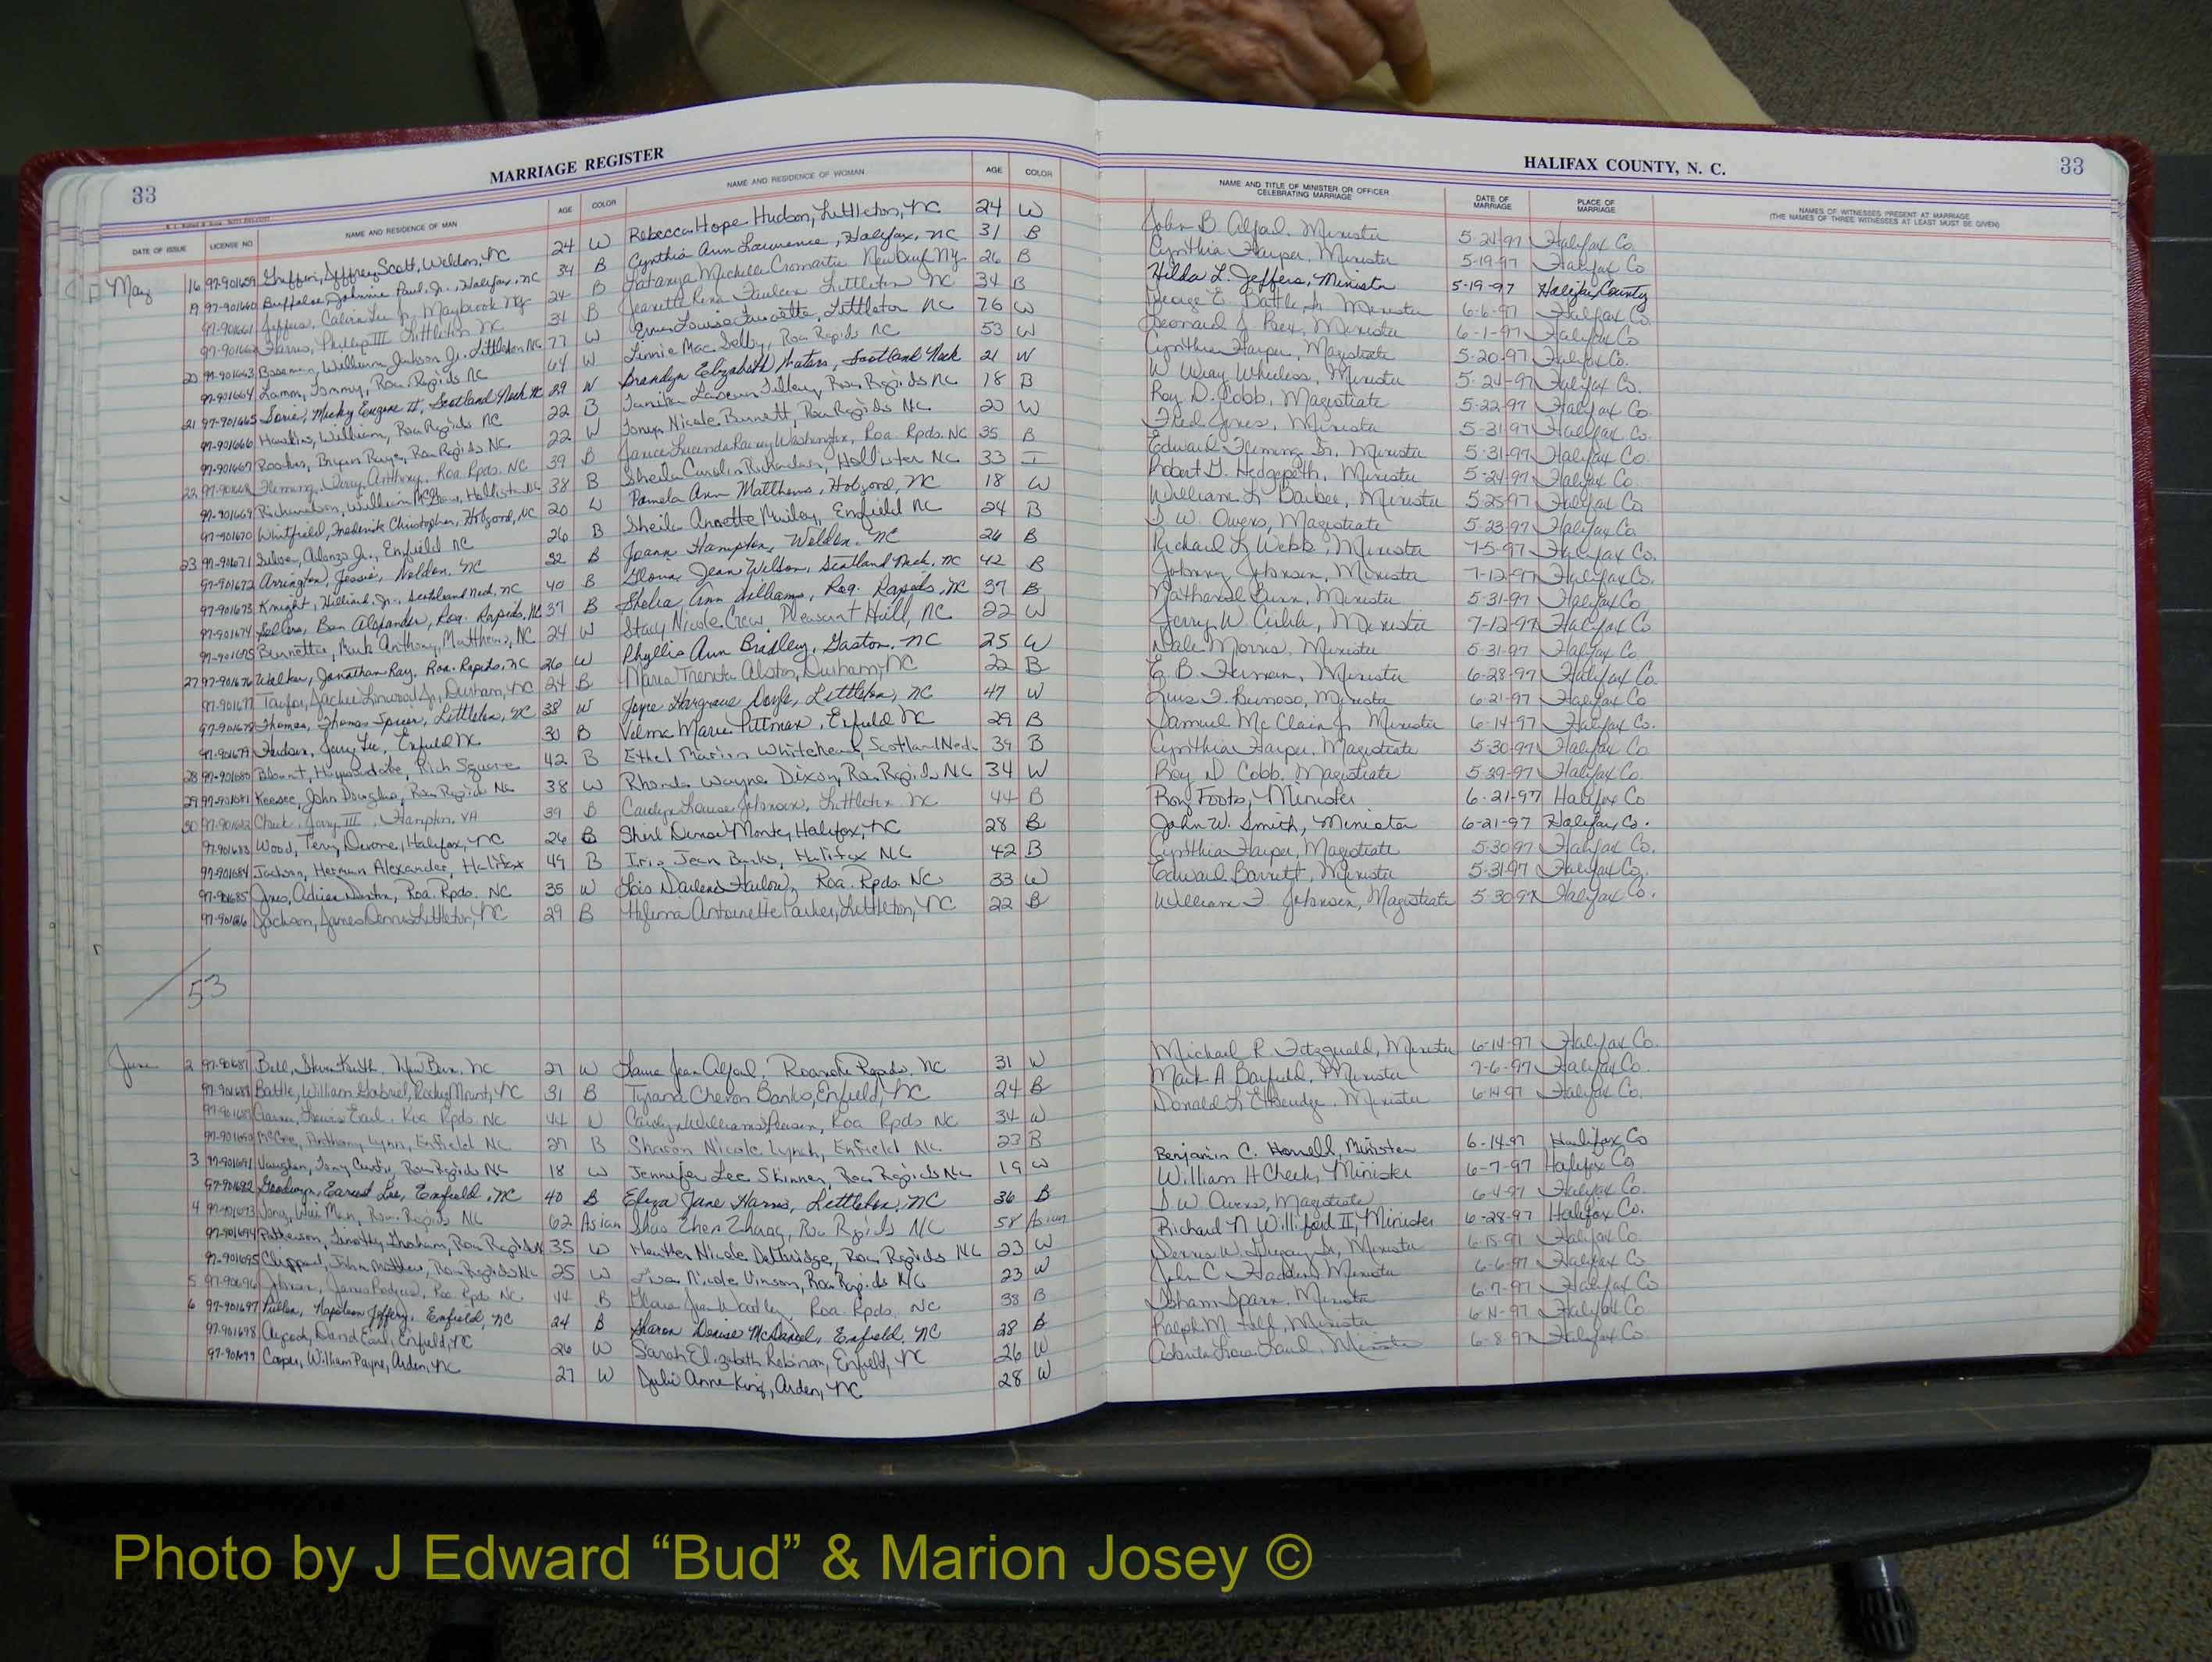 33 MARRIAGE REGISTER
HALIFAX COUNTY, N. C. 33
DATE OF ISSUE LICENSE NO NAME AND RESIDENCE OF MAN AGE COLOR NAME AND RESIDENCE OF WOMAN AGE COLOR
NAME AND TITLE OF MINISTER OR OFFICER CELEBRATING MARRIAGE DATE OF MARRIAGE PLACE OF MARRIAGE NAMES OF WITNESSES PRESENT AT MARRIAGE (THE NAMES OF THREE WITNESSES AT LEAST MUST BE GIVEN)
May 16 97-901659 Scott, Weldon, NC 24 W Rebecca Hope Hudson, Littleton, NC 24 W
19 97-901660 Johnnie Paul Jr., Halifax, NC 34 B Cynthia Ann Lawrence, Halifax, NC 31 B
97-901661 Jeffers, Calvin Lee Jr, Maybrook NY 24 B Michelle Cromartie Newburg NY 26 B
97-901662 Harris, Phillip III Littleton NC 34 B Littleton NC 34 B
20 97-901663 Boseman, William Jackson Jr. Littleton NC 77 W Louise Littleton NC 76 W
97-901664 Lamm, Tommy, Roa Rapids NC 64 W Linnie Mae Selby, Roa Rapids NC 53 W
21 97-901665 Micky Eugene II, Scotland Neck NC 29 W Brandyn Elizabeth Waters, Scotland Neck 21 W
97-901666 Hawkins, William, Roa Rapids NC 22 B Roa Rapids NC 18 B
97-901667 Rap Rapids NC 22 W Nicole Burnett, Roa Rapids NC 20 W
22 97-901668 Fleming, Anthony, Roa. Rpds. NC 39 B Janice Lucinda Washington, Roa. Rpds. NC 35 B
97-901669 Richardson, William Hollister NC 38 B Sheila Carolin Richardson, Hollister NC 33 I
97-901670 Whitfield, Frederick Christopher, Hobgood, NC 20 W Pamela Ann Matthews, Hobgood, NC 18 W
23 97-901671 Silver, Alonzo Jr., Enfield NC 26 B Sheila Annette Enfield NC 24 B
97-901672 Arrington, Jessie, Weldon, NC 32 B Joann Hampton, Weldon, NC 26 B
97-901673 Knight, Hilliard, Jr., Scotland Neck, NC 40 B Gloria Jean Wilson, Scotland Neck, NC 42 B
97-901674 Sellers, Ben Alexander, Roa. Rapids, NC 37 B Shelia Ann Williams, Roa. Rapids, NC 37 B
97-901675 Burnette, Mark Anthony, Matthews, NC 24 W Stacy Nicole Crew, Pleasant Hill, NC 22 W
27 97-901676 Walker, Jonathan Ray, Roa. Rapids, NC 26 W Phyllis Ann Bradley, Gaston, NC 25 W
97-901677 Taylor, Jackie Linwood Jr, Durham, NC 24 B Maria Alston, Durham, NC 22 B
97-901678 Thomas, Thomas Spicer, Littleton, NC 38 W Joyce Hargrove Doyle, Littleton, NC 47 W
97-901679 Hudson, Jerry Lee, Enfield NC 30 B Velma Marie Pittman, Enfield NC 29 B
28 97-901680 Blount, Rich Square 42 B Ethel Marion Whitehead, Scotland Neck 39 B
29 97-901681 Keesee, John Douglas, Roa Rapids NC 38 W Rhonda Wayne Dixon, Roa Rapids NC 34 W
30 97-901682 Cheek, Jerry III, Hampton, VA 39 B Carolyn Louise Johnson, Littleton NC 44 B
97-901683 Wood, Terry Halifax, NC 26 B Halifax, NC 28 B
97-901684 Jackson, Herman Alexander, Halifax 49 B Iris Jean Banks, Halifax NC 42 B
97-901685 Jones, Adrian Roa. Rpds. NC 35 W Lois Darlene Harlow, Roa. Rpds. NC 33 W
97-901686 Jackson, James Dennis Littleton, NC 29 B Antoinette Parker, Littleton, NC 22 B
53
June 2 97-901687 Bell, Steven Keith New Bern, NC 27 W Laura Jean Alford, Roanoke Rapids, NC 31 W
97-901688 Battle, William Gabriel, Rocky Mount, NC 31 B Tyrana Cheron Banks, Enfield, NC 24 B
97-901689 Earl, Roa Rpds. NC 44 W Carolyn Williams Roa Rpds NC 34 W
97-901690 McGee, Anthony Lynn, Enfield NC 27 B Sharon Nicole Lynch, Enfield NC 23 B
3 97-901691 Vaughan, Tony Curtis, Roa Rapids NC 18 W Jennifer Lee Skinner, Roa Rapids NC 19 W
97-901692 Goodwyn, Earnest Lee, Enfield, NC 40 B Eliza Jane Harris, Littleton, NC 36 B
4 97-901693 Roa. Rapids NC 62 Asian Shao Zhen Zhang, Roa Rapids NC 58 Asian
97-901694 Patterson, Timothy Graham, Roa Rapids NC 35 W Heather Nicole Delbridge, Roa Rapids NC 23 W
97-901695 John Matthew, Roa Rapids NC 25 W Lisa Nicole Vinson, Roa Rapids NC 23 W
5 97-901696 Johnson, James Roa. Rpds NC 44 B Jean Roa. Rpds. NC 38 B
6 97-901697 Pullen, Napoleon Jeffery, Enfield, NC 24 B Sharon Denise McDaniel, Enfield, NC 28 B
97-901698 Aycock, David Earl, Enfield, NC 26 W Sarah Elizabeth Robinson, Enfield, NC 26 W
97-901699 Cooper, William Payne, Arden, NC 27 W Julie Anne King, Arden, NC 28 W
John B. Alford, Minister 5-24-97 Halifax Co.
Cynthia Harper, Minister 5-19-97 Halifax Co
Hilda L. Jeffers, Minister 5-19-97 Halifax County
George E. Battle, Jr Minister 6-6-97 Halifax Co.
Leonard J. Minister 6-1-97 Halifax Co
Cynthia Harper, Magistrate 5-20-97 Halifax Co.
W. Wray Wheeless, Minister 5-24-97 Halifax Co.
Roy D. Cobb, Magistrate 5-22-97 Halifax Co.
Fred Jones, Minister 5-31-97 Halifax Co.
Edward Fleming Sr. Minister 5-31-97 Halifax Co
Robert G. Hedgepeth, Minister 5-24-97 Halifax Co
William L. Barbee, Minister 5-25-97 Halifax Co
S. W. Owens, Magistrate 5-23-97 Halifax Co.
Richard L. Webb, Minister 7-5-97 Halifax Co.
Johnny Johnson, Minister 7-12-97 Halifax Co.
Nathaniel Bunn, Minister 5-31-97 Halifax Co
Jerry W. Minister 7-12-97 Halifax Co
Dale Morris, Minister 5-31-97 Halifax Co
E. B. Minister 6-28-97 Halifax Co.
Luis F. Minister 6-21-97 Halifax Co
Samuel McClain Jr Minister 6-14-97 Halifax Co.
Cynthia Harper, Magistrate 5-30-97 Halifax Co
Roy D. Cobb, Magistrate 5-29-97 Halifax Co.
Roy Foots, Minister 6-21-97 Halifax Co
John W. Smith, Minister 6-21-97 Halifax Co.
Cynthia Harper, Magistrate 5-30-97 Halifax Co.
Edward Barrett, Minister 5-31-97 Halifax Co.
William F. Johnson, Magistrate 5-30-97 Halifax Co.
Michael R. Fitzgerald, Minister 6-14-97 Halifax Co.
Mark A Barfield, Minister 7-6-97 Halifax Co.
Donald L. Etheridge, Minister 6-14-97 Halifax Co.
Benjamin C. Howell, Minister 6-14-97 Halifax Co
William H Cheek, Minister 6-7-97 Halifax Co
S W Owens, Magistrate 6-4-97 Halifax Co.
Richard N Williford II, Minister 6-28-97 Halifax Co.
Dennis W. Minister 6-15-97 Halifax Co
John C. Minister 6-6-97 Halifax Co
Isham Minister 6-7-97 Halifax Co
Ralph M. Minister 6-11-97 Halifax Co
Minister 6-8-97 Halifax Co
Photo by J Edward “Bud” & Marion Josey ©